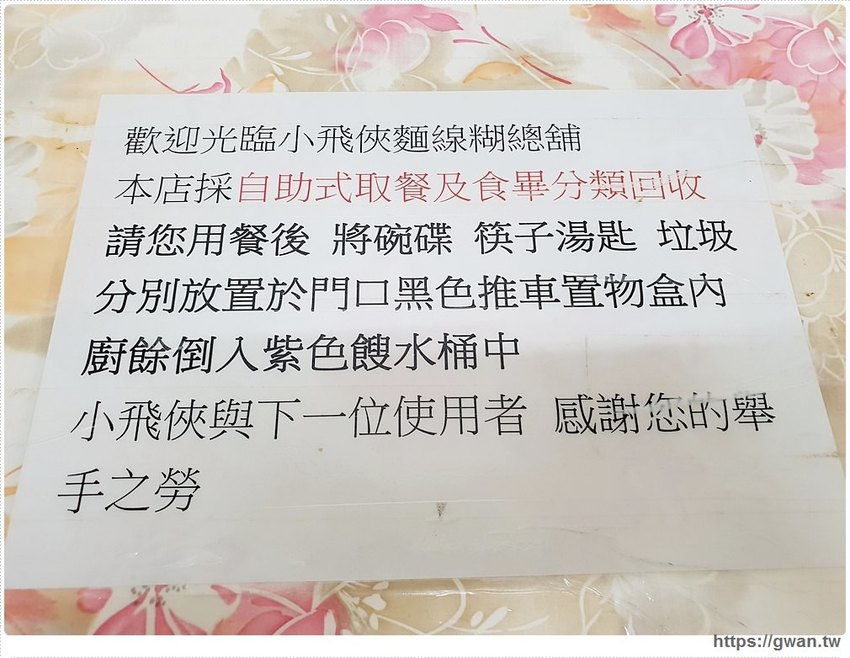 歡迎光臨小飛俠麵線糊總舖
本店採自助式取餐及食畢分類回收
請您用餐後 將碗碟 筷子湯匙 垃圾
分別放置於門口黑色推車置物盒內
廚餘倒入紫色餿水桶中
小飛俠與下一位使用者 感謝您的舉
手之勞
https://gwan.tw